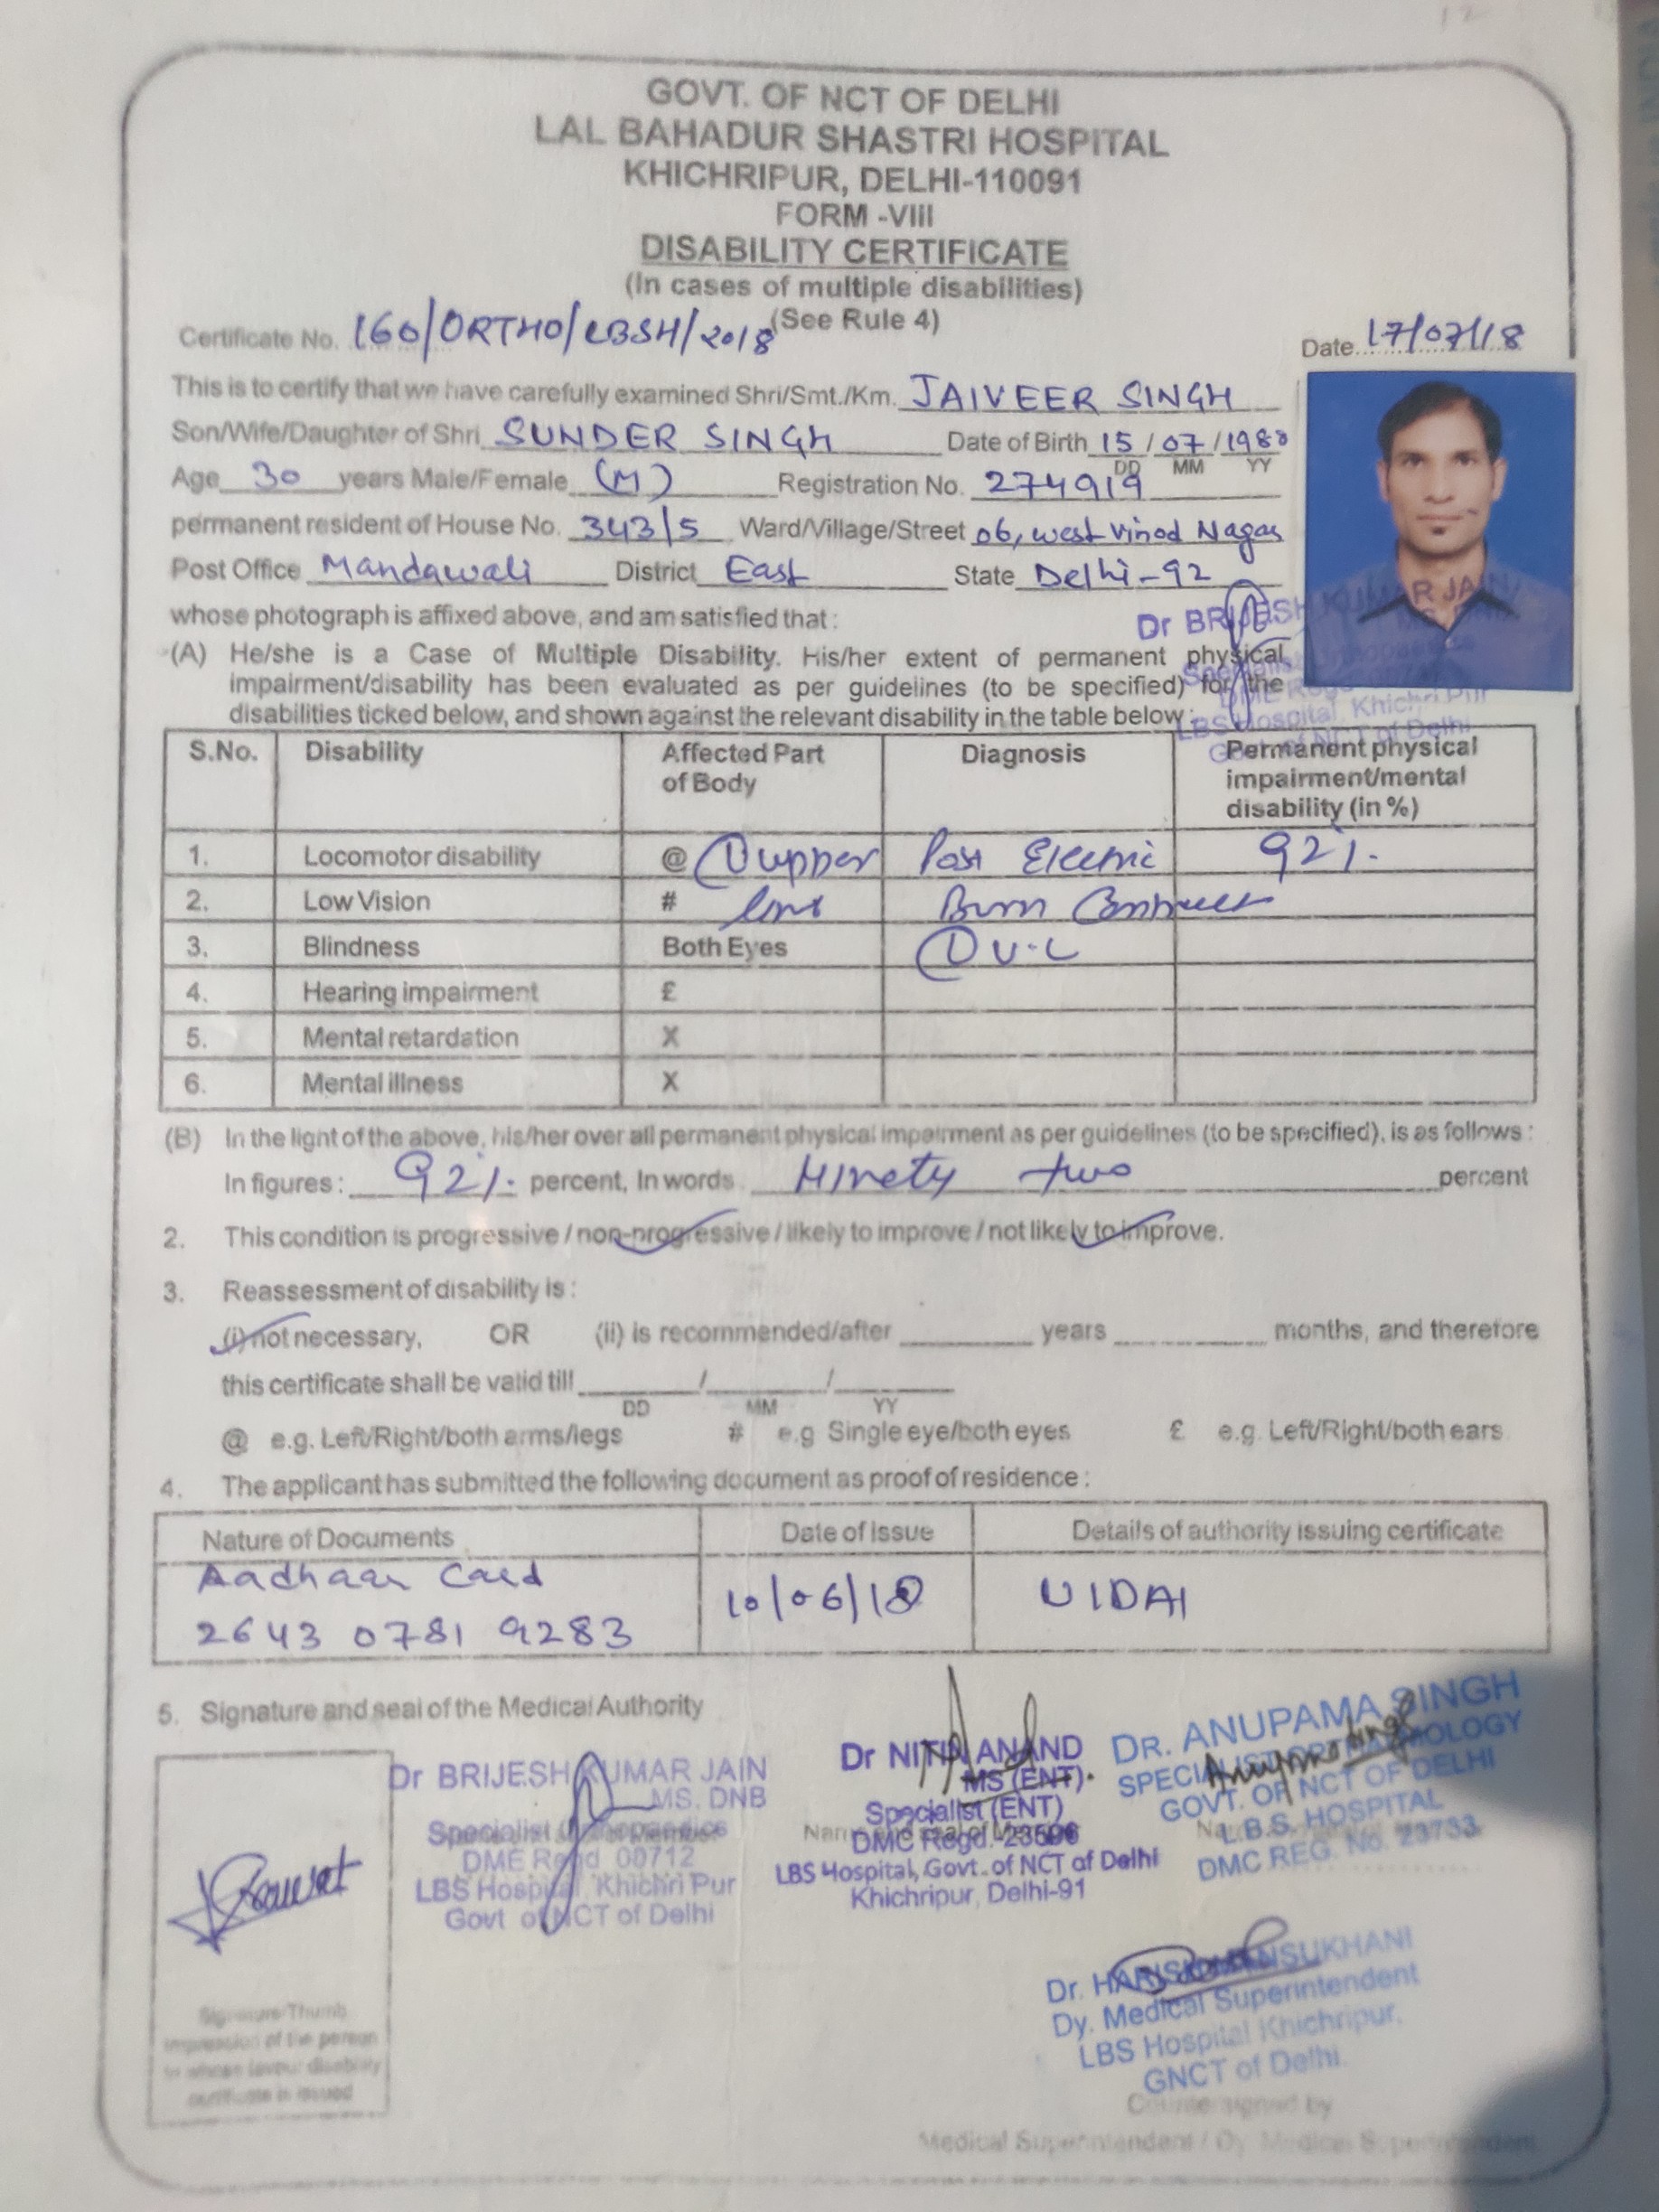 GOVT. OF NCT OF DELHI
LAL BAHADUR SHASTRI HOSPITAL
KHICHRIPUR, DELHI-110091
FORM -VIII
DISABILITY CERTIFICATE
(In cases of multiple disabilities)
(See Rule 4)
Certificate No. 160/ORTHO/LBSH/2018
Date 17/07/18
This is to certify that we have carefully examined Shri/Smt./Km. JAIVEER SINGH
Son/Wife/Daughter of Shri SUNDER SINGH Date of Birth 15/07/1988
DD MM YY
Age 30 years Male/Female (M) Registration No. 274919
permanent resident of House No. 343/5 Ward/Village/Street 06, west Vinod Nagar
Post Office Mandawali District East State Delhi-92
whose photograph is affixed above, and am satisfied that :
Dr BRIJESH KUMAR JAIN
LBS Hospital, Khichri Pur
Govt of NCT of Delhi
(A) He/she is a Case of Multiple Disability. His/her extent of permanent physical
impairment/disability has been evaluated as per guidelines (to be specified) for the
disabilities ticked below, and shown against the relevant disability in the table below :
S.No. Disability Affected Part of Body Diagnosis Permanent physical impairment/mental disability (in %)
1. Locomotor disability @ upper Post Electric 92%.
2. Low Vision # limb Burn
3. Blindness Both Eyes
4. Hearing impairment £
5. Mental retardation X
6. Mental illness X
(B) In the light of the above, his/her over all permanent physical impairment as per guidelines (to be specified), is as follows :
In figures : 92%. percent, In words Ninety two percent
2. This condition is progressive / non-progressive / likely to improve / not likely to improve.
3. Reassessment of disability is :
(i) not necessary, OR (ii) is recommended/after years months, and therefore
this certificate shall be valid till / /
DD MM YY
@ e.g. Left/Right/both arms/legs # e.g Single eye/both eyes £ e.g. Left/Right/both ears
4. The applicant has submitted the following document as proof of residence :
Nature of Documents Date of issue Details of authority issuing certificate
Aadhaar Card 10/06/18 UIDAI
2643 0781 9283
5. Signature and seal of the Medical Authority
Dr BRIJESH KUMAR JAIN
MS. DNB
Specialist Orthopaedics
DME Regd 00712
LBS Hospital, Khichri Pur
Govt of NCT of Delhi
Dr NITIN ANAND
MS (ENT).
Specialist (ENT)
DMC Regd. 23596
LBS Hospital, Govt. of NCT of Delhi
Khichripur, Delhi-91
DR. ANUPAMA SINGH
SPECIALIST OPHTHALMOLOGY
GOVT. OF NCT OF DELHI
L.B.S. HOSPITAL
DMC REG. No. 23733
Signature/Thumb
impression of the person
in whose favour disability
certificate is issued
Dr. MANSUKHANI
Dy. Medical Superintendent
LBS Hospital Khichripur,
GNCT of Delhi
Counter signed by
Medical Superintendent / Dy. Medical Superintendent